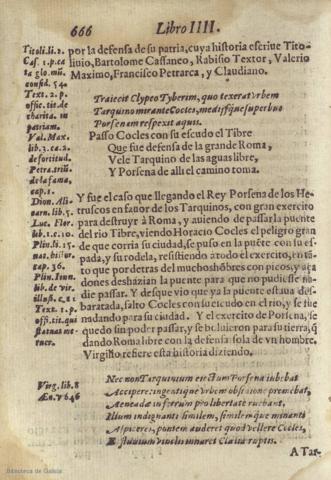 666 Libro IIII.
por la defensa de su patria, cuya historia escriue Tito
liuio, Bartolome Cassaneo, Rabisio Textor, Valerio
Maximo, Francisco Petrarca, y Claudiano.
Traiecit Clypeo Tyberim, quo texerat vrbem
Tarquino mirante Cocles, mediisque superbuo
Porsenam respexit aquis.
Passo Cocles con su escudo el Tibre
Que fue defensa de la grande Roma,
Vele Tarquino de las aguas libre,
Y Porsena de alli el camino toma.
Y fue el caso que llegando el Rey Porsena de los He-
truscos en fauor de los Tarquinos, con gran exercito
para destruyr à Roma, y auiendo de passar la puente
del rio Tibre, viendo Horacio Cocles el peligro gran
de que corria su ciudad, se puso en la puẽte con su es-
pada, y su rodela, resistiendo à todo el exercito, en tã-
to que por detras del muchos hõbres con picos, y aça
dones deshazian la puente para que no pudiesse na-
die passar. Y desque vio que ya la puente estaua des-
baratada, salto Cocles con su escudo en el rio, y se fue
nadando para su ciudad. Y el exercito de Porsena, se
quedo sin poder passar, y se boluieron para su tierra, q̃
dando Roma libre con la defensa sola de vn hombre.
Virgilio refiere esta historia diziendo.
Nec non Tarquinium eiectum Porsena iubebat
Accipere: ingentique vrbem obsidione premebat,
Aeneadæ in ferrum pro libertate ruebant,
Illum indignanti similem, similemque minanti
Aspiceres, pontem auderet quod vellere Cocles,
Et fluuium vinclis innaret Clœlia ruptis.
A Tar-
Titoli.li.2.
Cas. 1. p. ca
ta glo. mũ.
consid. 54.
Text. 2. p.
offic. tit. de
charita. in
patriam.
Val. Max.
lib. 3. ca. 2.
de fortitud.
Petra. triũ.
de la fama,
cap. 1.
Dion. Ali.
carn. lib. 5.
Luc. Flor.
lib. 1. c. 10.
Plin. li. 15.
cap. 36.
Plin. Iun.
lib. de vir.
Text. 1. p.
offi. tit. qui
Virg. lib. 8
Æn. v 646
Biblioteca de Galicia